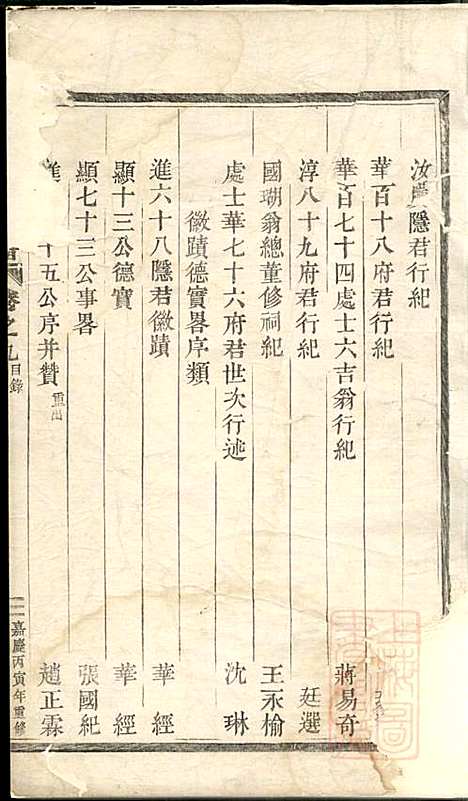 汝慶隱君行紀
華百十八府君行紀
華百七十四處士六吉翁行紀 蔣易奇
淳八十九府君行紀 廷選
國瑚翁總董修祠紀 王永榆
處士華七十六府君世次行述 沈琳
徽蹟德實畧序類
進六十八隱君徽蹟 華經
顯十三公德實 華經
顯七十三公事畧 張國紀
進 十五公序并贊 重出 趙正霖
卷之九目錄
三 嘉慶丙寅年重修
上海圖書